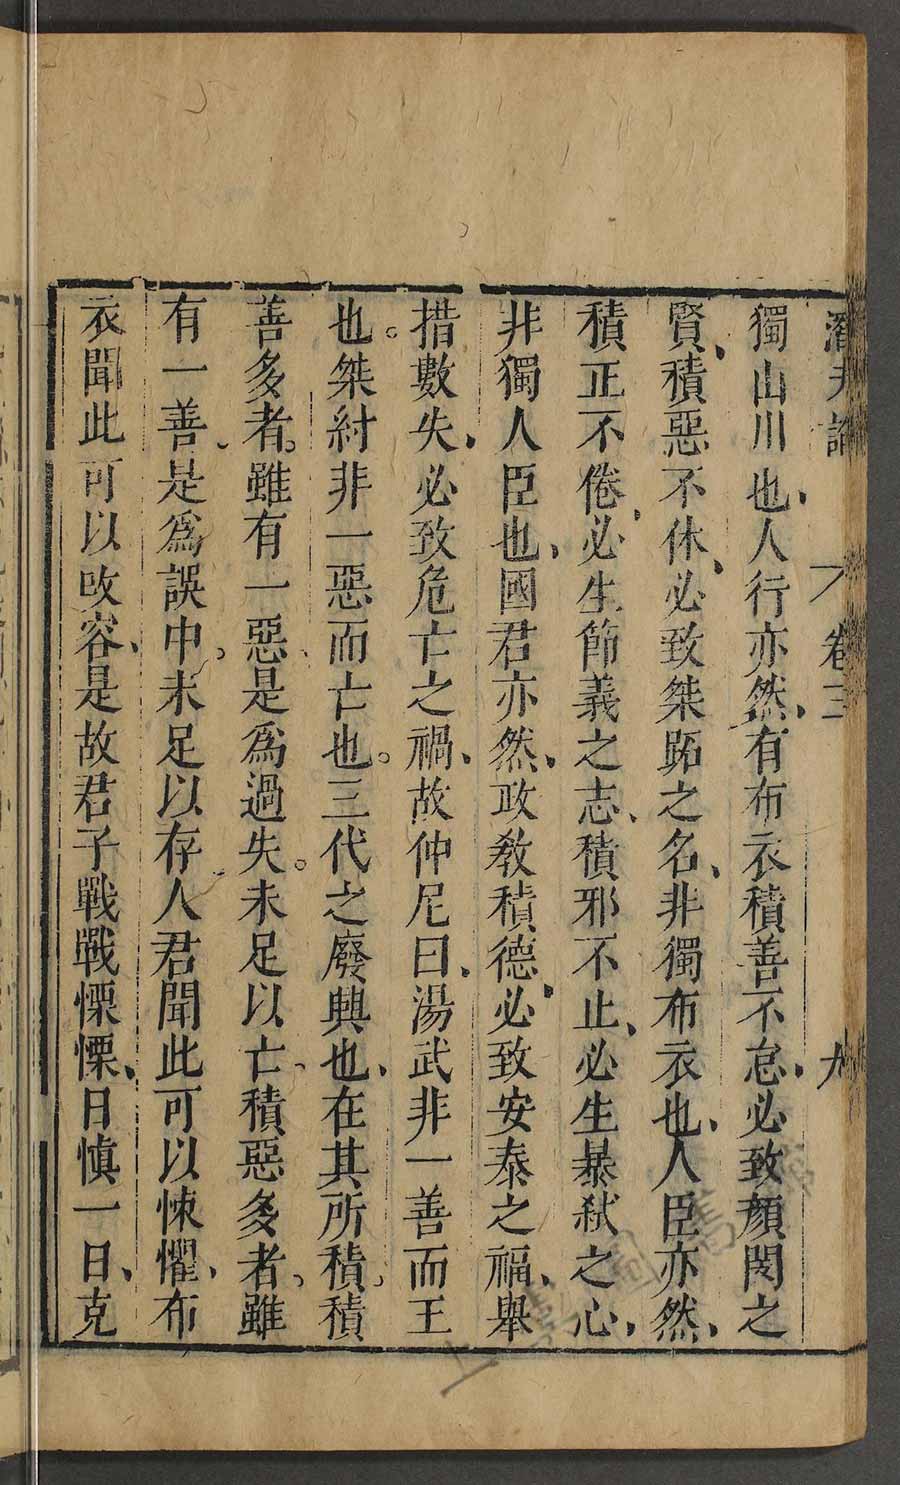 潛夫論 卷三 九
獨山川也、人行亦然、有布衣積善不怠、必致顏閔之
賢、積惡不休、必致桀跖之名、非獨布衣也、人臣亦然、
積正不倦、必生節義之志、積邪不止、必生暴弒之心、
非獨人臣也、國君亦然、政敎積德、必致安泰之福、舉
措數失、必致危亡之禍、故仲尼曰、湯武非一善而王
也。桀紂非一惡而亡也。三代之廢興也、在其所積。積
善多者。雖有一惡、是爲過失。未足以亡、積惡多者、雖
有一善、是爲誤中。未足以存、人君聞此可以悚懼、布
衣聞此可以攺容、是故君子戰戰慄慄、日愼一日、克